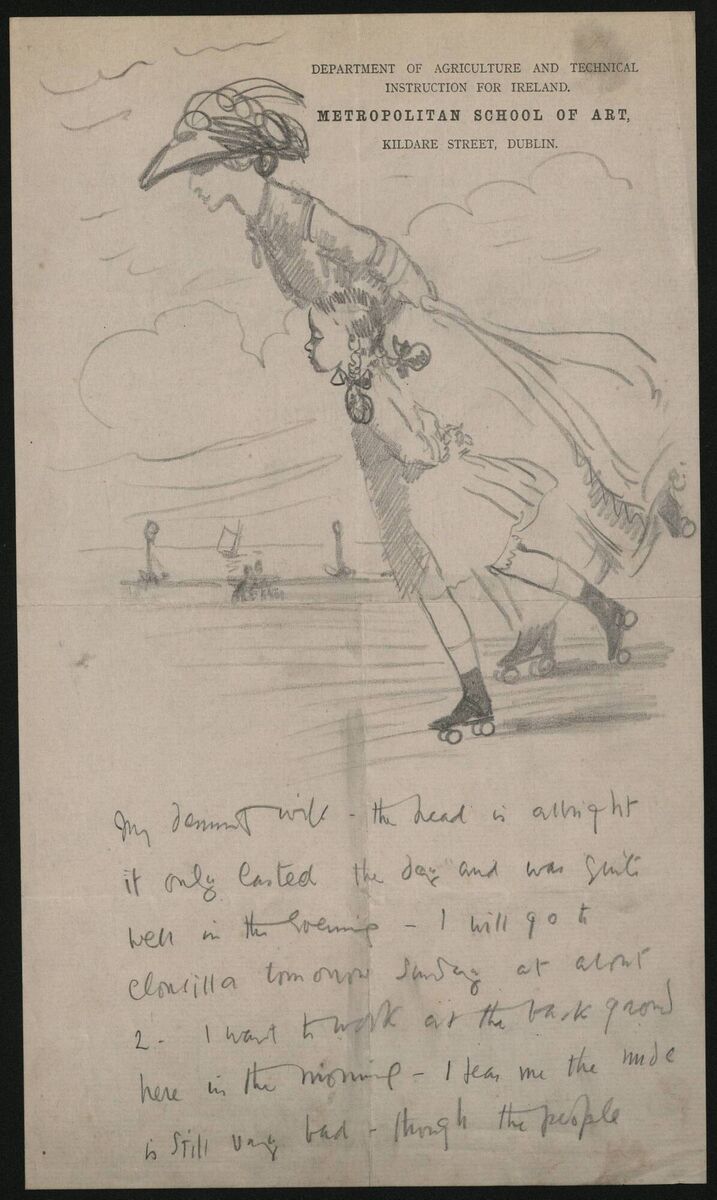 DEPARTMENT OF AGRICULTURE AND TECHNICAL
INSTRUCTION FOR IRELAND.
METROPOLITAN SCHOOL OF ART,
KILDARE STREET, DUBLIN.
My dearest wife - the head is allright
it only lasted the day and was quite
well in the evening - I will go to
Clonsilla tomorrow Sunday at about
2 - I want to work at the back ground
here in the morning - I fear me the nude
is still very bad - though the people